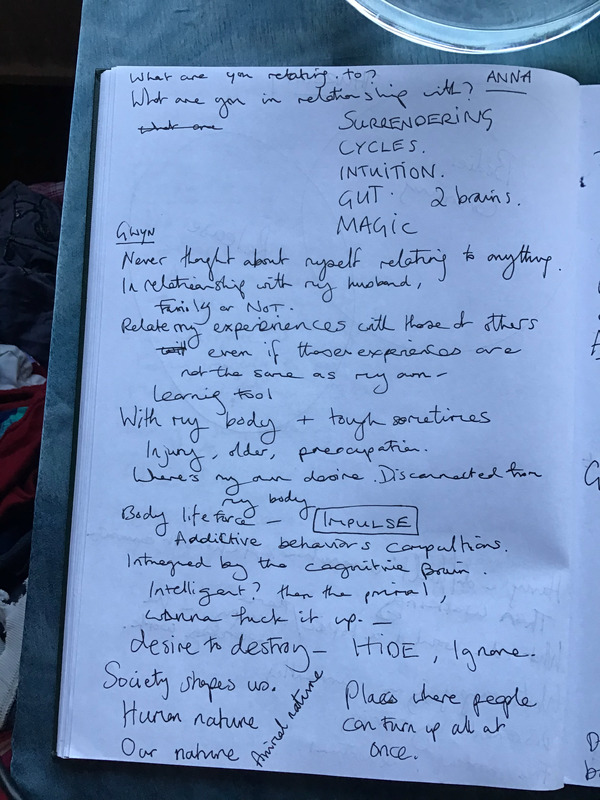 What are you relating to? ANNA
What are you in relationship with?
What are
SURRENDERING
CYCLES.
INTUITION.
GUT. 2 brains.
MAGIC
GWYN
Never thought about myself relating to anything.
In relationship with my husband,
Family or Not.
Relate my experiences with those of others
even if those experiences are
not the same as my own -
Learning tool
With my body + tough sometimes
Injury, older, preocupation.
Where's my own desire. Disconnected from
my body
Body life force - IMPULSE
Addictive behaviors compultions.
Intregued by the cognitive Brain.
Intelligent? then the primal,
wanna fuck it up. -
desire to destroy - HIDE, Ignore.
Society shapes us.
Human nature
Our nature
Animal nature
Places where people
can turn up all at
once.